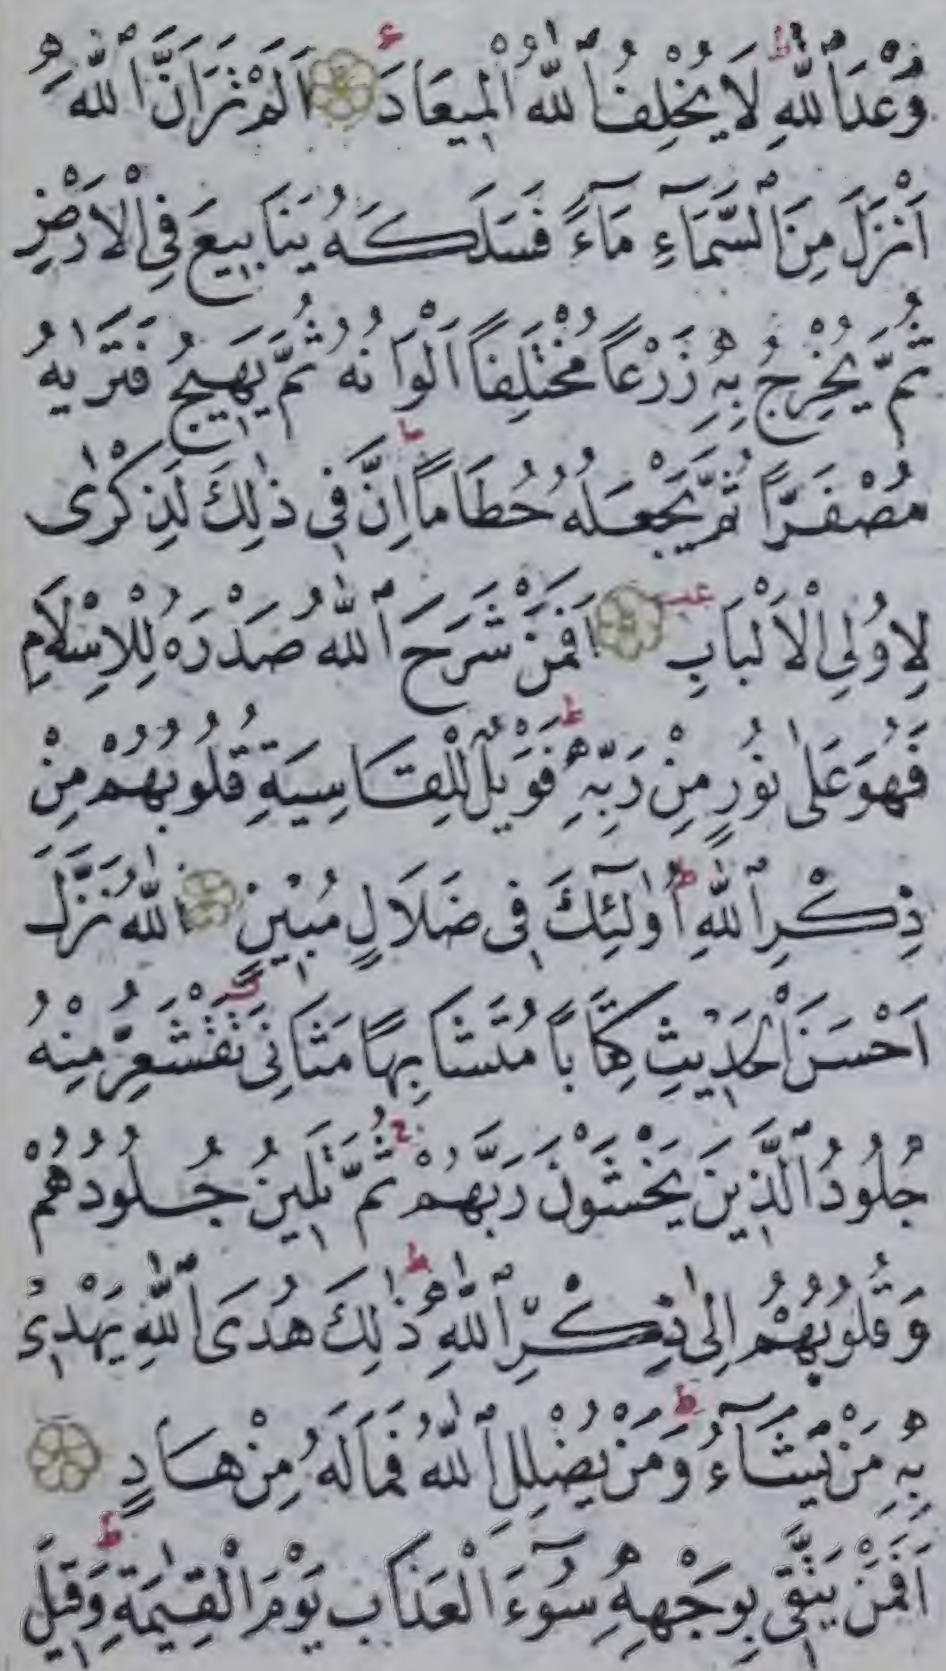 وَعْدَ اللّٰهِ ط لَا يُخْلِفُ اللّٰهُ الْمِيعَادَ ع اَلَمْ تَرَ اَنَّ اللّٰهَ
اَنْزَلَ مِنَ السَّمَآءِ مَآءً فَسَلَكَهُ يَنَابِيعَ فِى الْاَرْضِ
ثُمَّ يُخْرِجُ بِهٖ زَرْعًا مُخْتَلِفًا اَلْوَانُهُ ثُمَّ يَهِيجُ فَتَرٰيهُ
مُصْفَرًّا ثُمَّ يَجْعَلُهُ حُطَامًا ط اِنَّ فِى ذٰلِكَ لَذِكْرٰى
لِاُولِى الْاَلْبَابِ عب اَفَمَنْ شَرَحَ اللّٰهُ صَدْرَهُ لِلْاِسْلَامِ
فَهُوَ عَلٰى نُورٍ مِنْ رَبِّهٖ ط فَوَيْلٌ لِلْقَاسِيَةِ قُلُوبُهُمْ مِنْ
ذِكْرِ اللّٰهِ ط اُولٰٓئِكَ فِى ضَلَالٍ مُبِينٍ اَللّٰهُ نَزَّلَ
اَحْسَنَ الْحَدِيثِ كِتَابًا مُتَشَابِهًا مَثَانِىَ تَقْشَعِرُّ مِنْهُ
جُلُودُ الَّذِينَ يَخْشَوْنَ رَبَّهُمْ ج ثُمَّ تَلِينُ جُلُودُهُمْ
وَقُلُوبُهُمْ اِلٰى ذِكْرِ اللّٰهِ ط ذٰلِكَ هُدَى اللّٰهِ يَهْدِى
بِهٖ مَنْ يَشَآءُ ط وَمَنْ يُضْلِلِ اللّٰهُ فَمَا لَهُ مِنْ هَادٍ
اَفَمَنْ يَتَّقِى بِوَجْهِهٖ سُوٓءَ الْعَذَابِ يَوْمَ الْقِيٰمَةِ ط وَقِيلَ